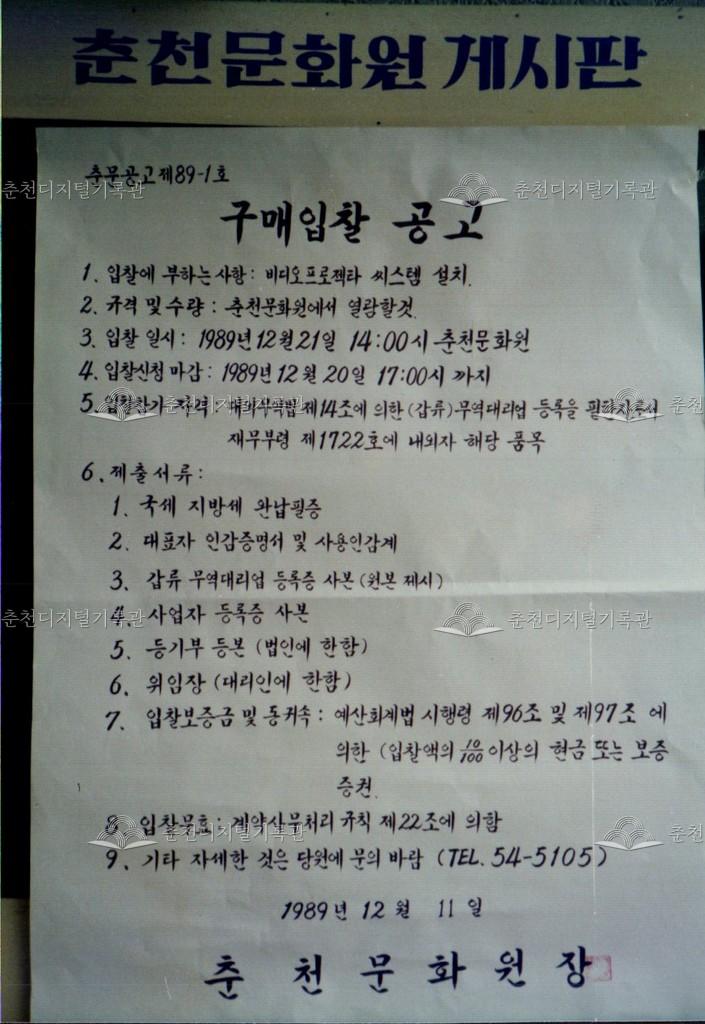 춘천문화원 게시판
춘문공고제89-1호
구매입찰 공고
1. 입찰에 부하는사항: 비디오프로젝타 씨스템 설치.
2. 규격 및 수량: 춘천문화원에서 열람할것.
3. 입찰 일시: 1989년 12월 21일 14:00시 춘천문화원
4. 입찰신청 마감: 1989년 12월 20일 17:00시 까지
5. 입찰참가 자격: 대외무역법 제14조에 의한 (갑류) 무역대리업 등록을 필한자로서
재무부령 제1722호에 내외자 해당 품목
6. 제출서류:
1. 국세 지방세 완납필증
2. 대표자 인감증명서 및 사용인감계
3. 갑류 무역대리업 등록증 사본 (원본 제시)
4. 사업자 등록증 사본
5. 등기부 등본 (법인에 한함)
6. 위임장 (대리인에 한함)
7. 입찰보증금 및 동귀속: 예산회계법 시행령 제96조 및 제97조 에
의한 (입찰액의 10/100 이상의 현금 또는 보증
증권.
8. 입찰무효: 계약사무처리 규칙 제22조에 의함
9. 기타 자세한 것은 당원에 문의 바람 (TEL. 54-5105)
1989년 12월 11일
춘천문화원장
춘천디지털기록관